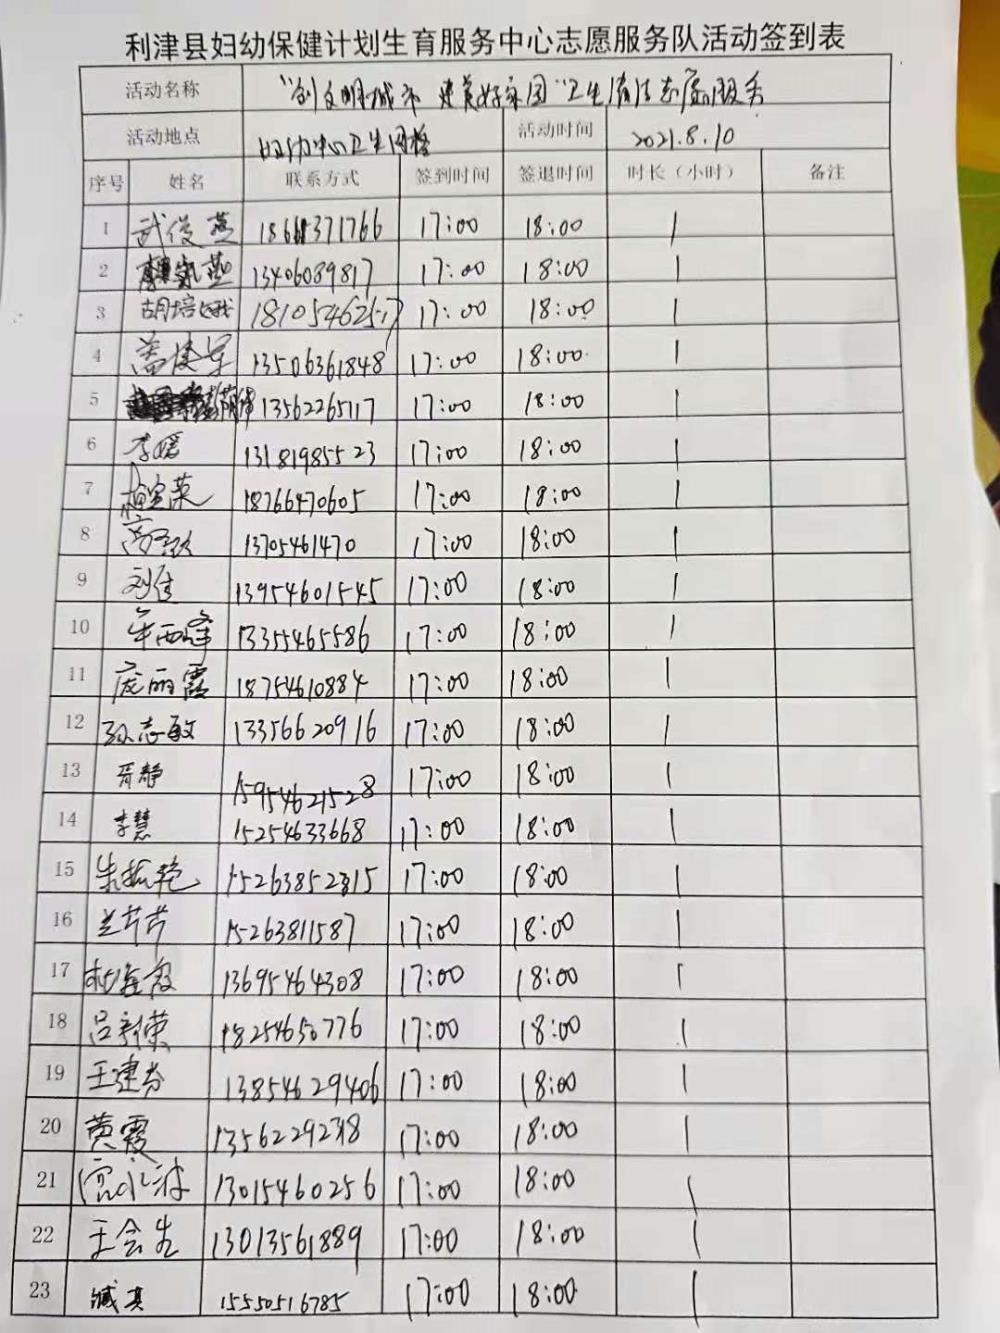 利津县妇幼保健计划生育服务中心志愿服务队活动签到表
活动名称 "创文明城市 建美好家园"卫生清洁志愿服务
活动地点 妇幼中心卫生网格 活动时间 2021.8.10
序号 姓名 联系方式 签到时间 签退时间 时长（小时） 备注
1 武俊燕 17:00 18:00 1
2 13406089817 17:00 18:00 1
3 胡培娥 17:00 18:00 1
4 盖俊军 13506361848 17:00 18:00 1
5 13562265117 17:00 18:00 1
6 李媛 13181985523 17:00 18:00 1
7 18766470605 17:00 18:00 1
8 13705461470 17:00 18:00 1
9 刘佳 13954601545 17:00 18:00 1
10 13355465586 17:00 18:00 1
11 庞丽霞 18754610884 17:00 18:00 1
12 孙志敏 13356620916 17:00 18:00 1
13 胥静 15954621528 17:00 18:00 1
14 李慧 15254633668 17:00 18:00 1
15 朱振艳 15263852815 17:00 18:00 1
16 兰芹芹 15263811587 17:00 18:00 1
17 13695464308 17:00 18:00 1
18 吕新荣 18254650776 17:00 18:00 1
19 王建芬 13854629406 17:00 18:00 1
20 黄霞 17:00 18:00 1
21 13015460256 17:00 18:00 1
22 王会生 13013561889 17:00 18:00 1
23 15550516785 17:00 18:00 1